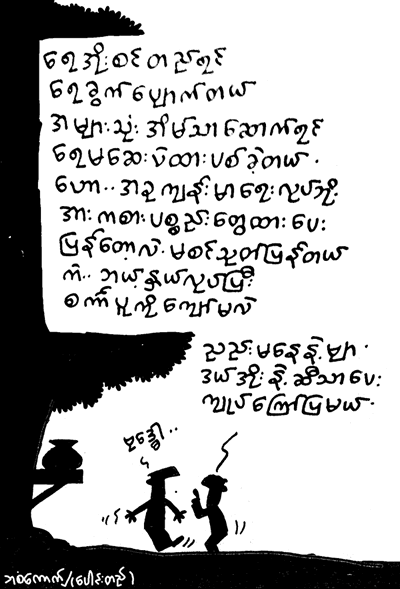 ရေအိုးစင်တည်ရင်
ရေခွက်ပျောက်တယ်
အများသုံးအိမ်သာဆောက်ရင်
ရေမဆေးပဲထားပစ်ခဲ့တယ်.
ဟော.. အခုကျန်းမာရေးလုပ်ဘို့
အားကစားပစ္စည်းတွေထားပေး
ပြန်တော့လဲ.မစင်သူတို့ပြန်တယ်
ကဲ.. ဘယ့်နှယ်လုပ်ပြီး
စက်မှုကိုကျော်မလဲ
ညည်းမနေနဲ့ဗျာ.
ဒယ်အိုးနဲ့ဆီသာပေး
ကျုပ်ကြော်ပြမယ်.
ဗုဒ္ဓေါ..